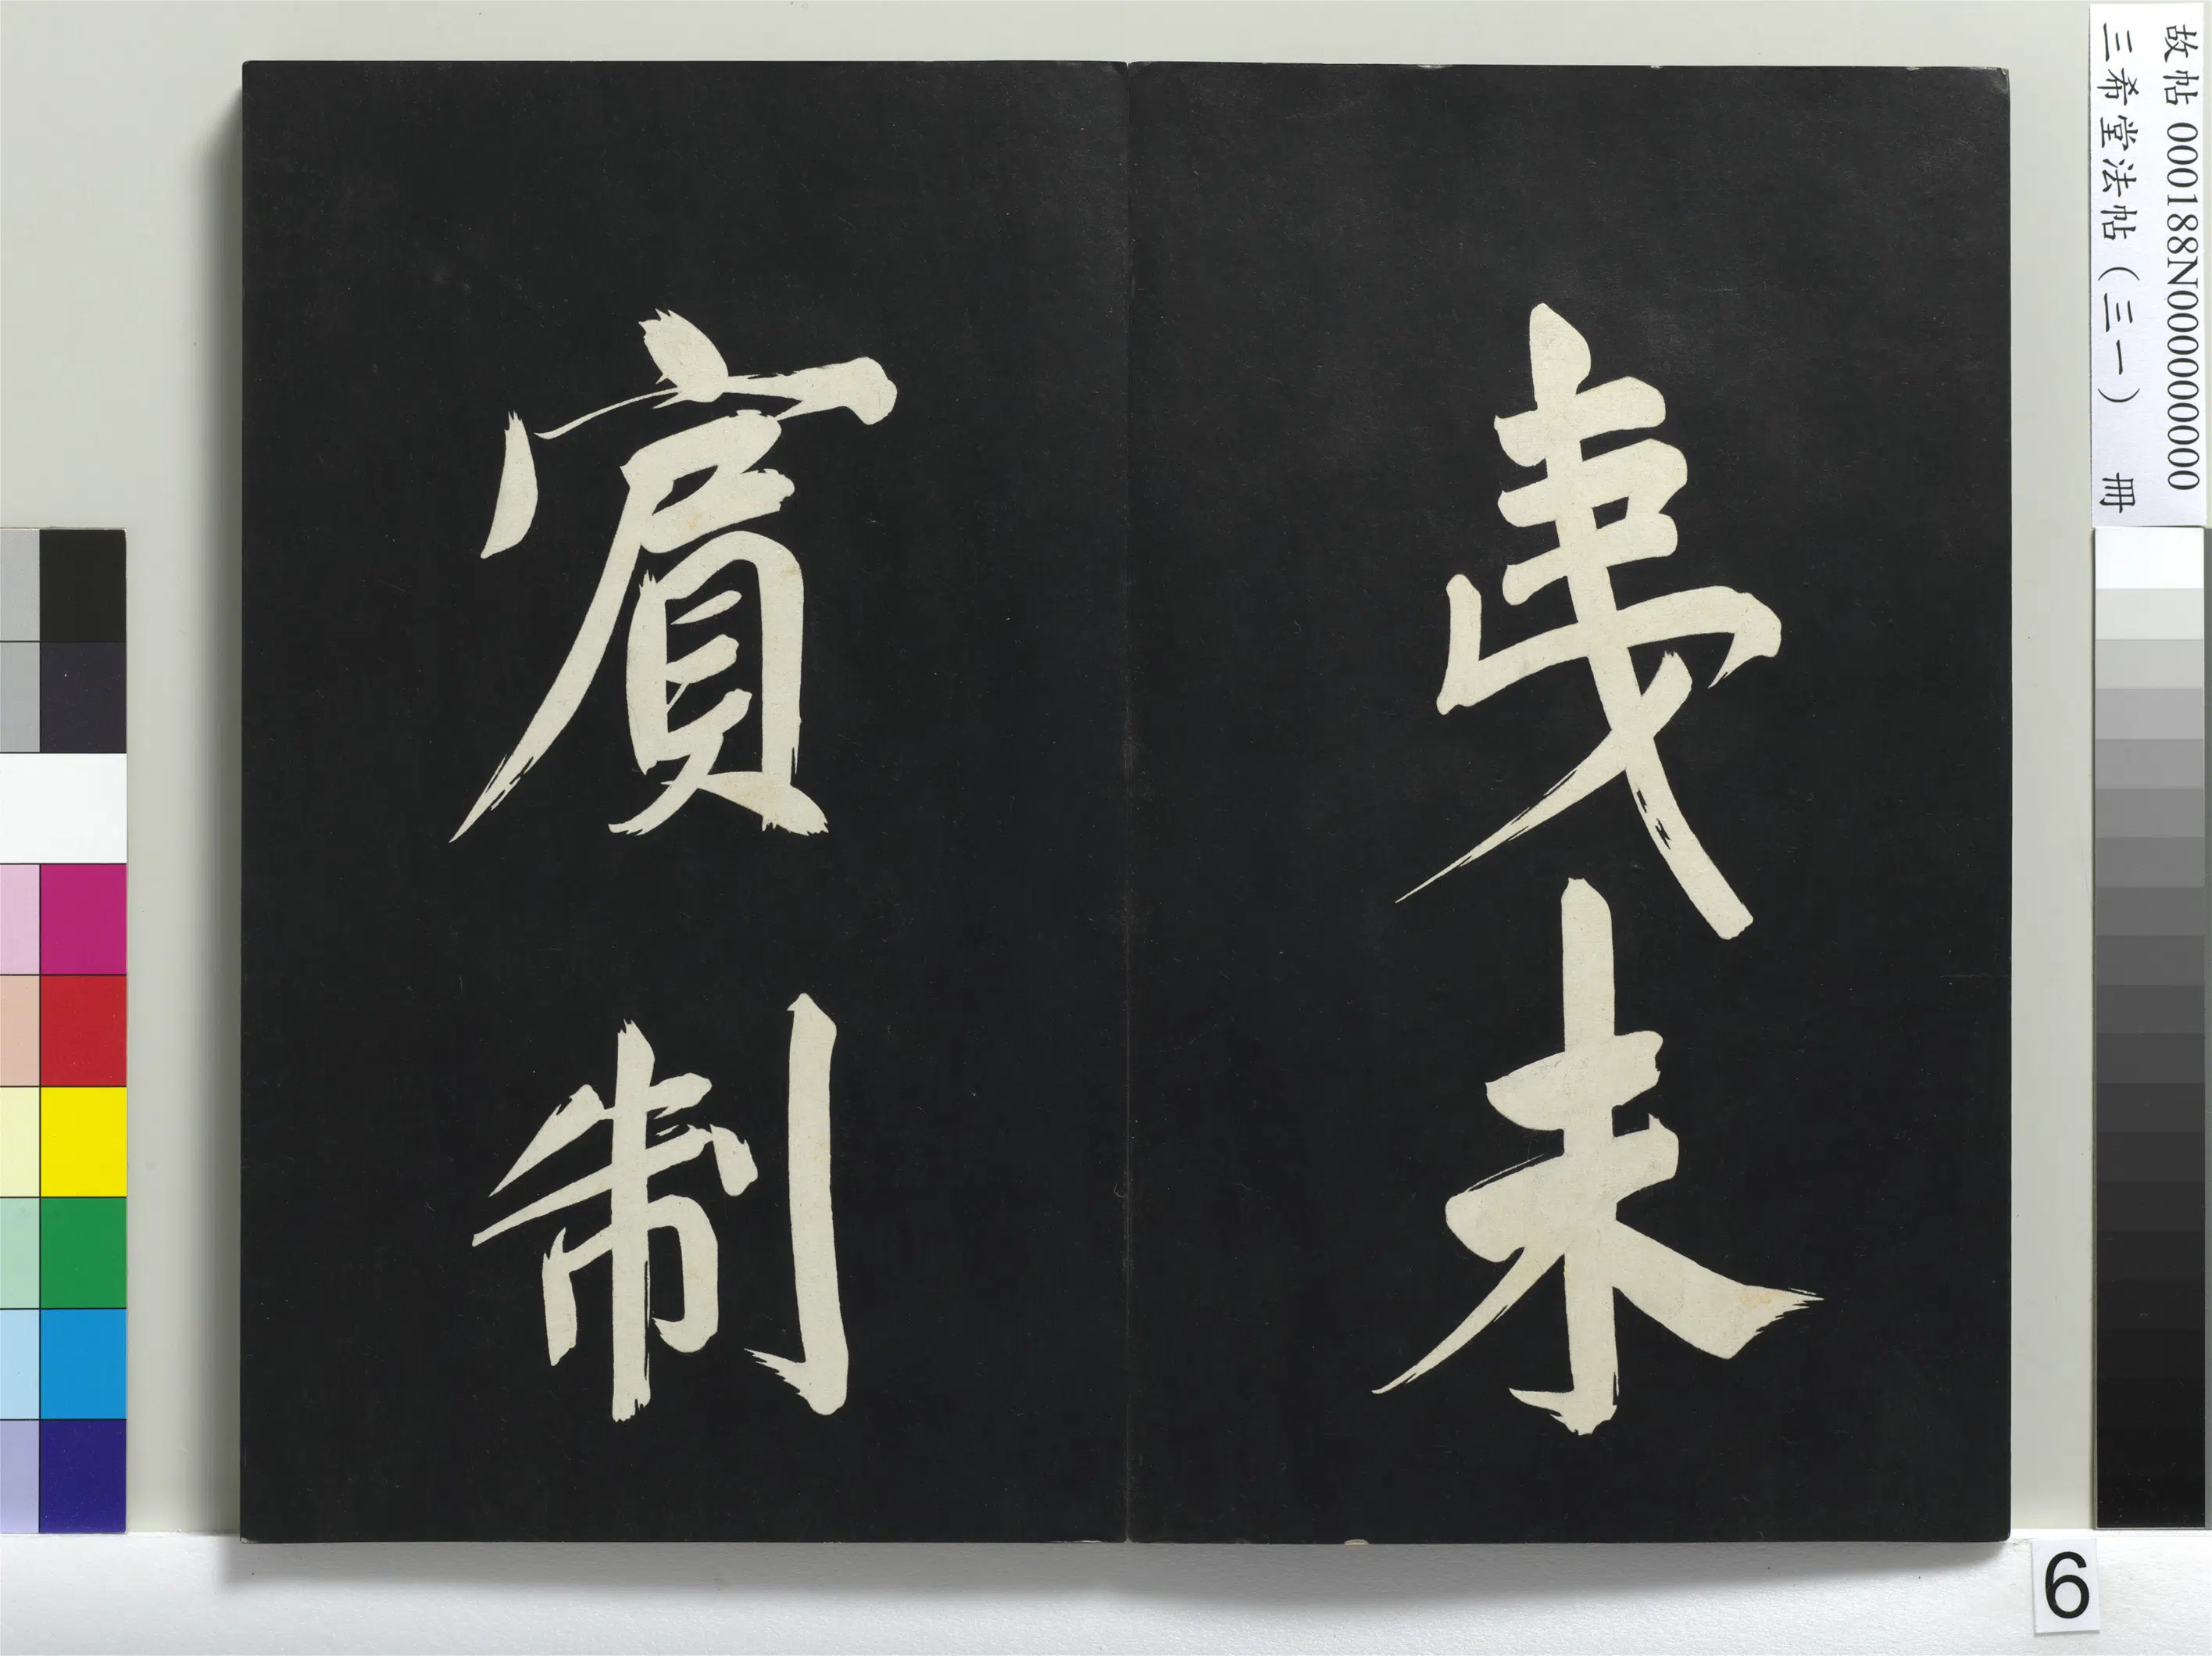 未
賓制
故帖 000188N000000000
三希堂法帖（三一） 冊
6